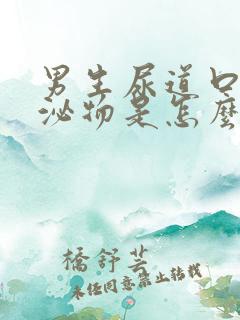 男生尿道口
泌物是怎麼
橋舒芸
未经同意禁止转载